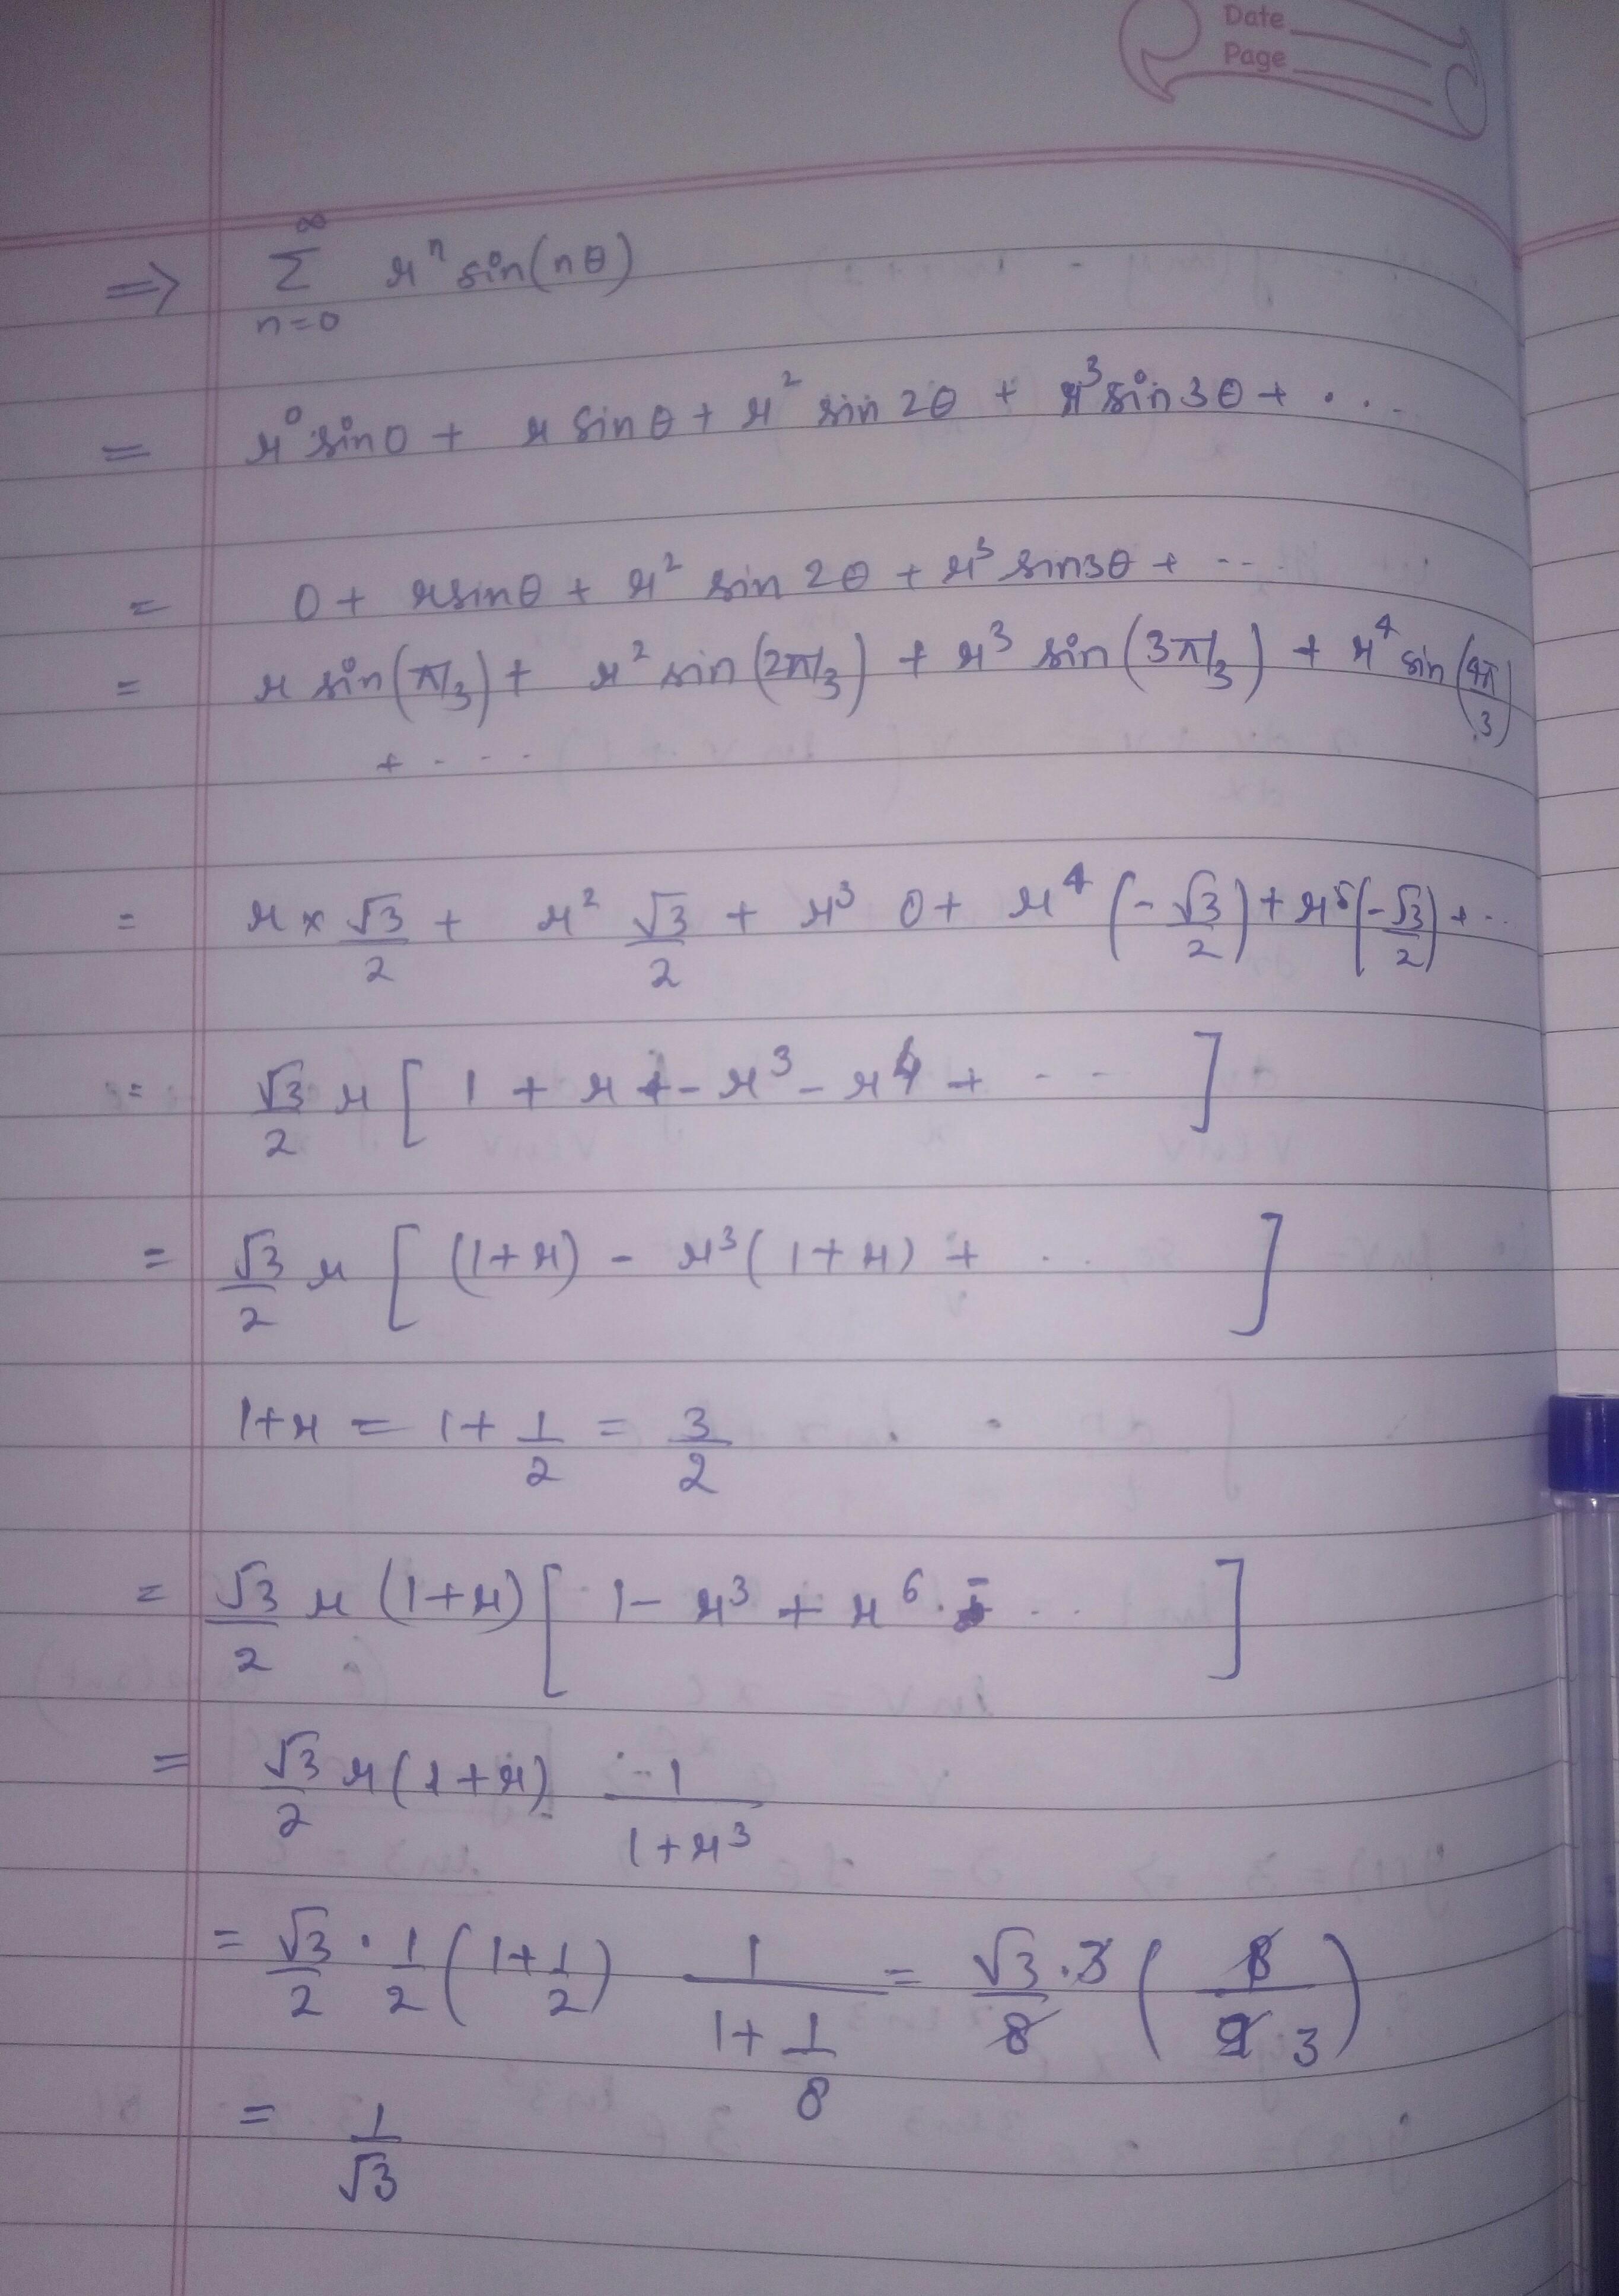 Date
Page
⇒ ∞ Σ n=0 r^n sin(nθ)
= r^0 sin0 + r sinθ + r^2 sin 2θ + r^3 sin 3θ + ....
= 0 + r sinθ + r^2 sin 2θ + r^3 sin3θ + ...
= r sin(π/3) + r^2 sin(2π/3) + r^3 sin(3π/3) + r^4 sin(4π/3)
+ ....
= r × √3/2 + r^2 √3/2 + r^3 0 + r^4 (-√3/2) + r^5 (-√3/2) + ..
= √3/2 r [ 1 + r - r^3 - r^4 + .... ]
= √3/2 r [ (1+r) - r^3 (1+r) + .... ]
1+r = 1 + 1/2 = 3/2
= √3/2 r (1+r) [ 1 - r^3 + r^6 - ... ]
= √3/2 r (1+r) 1/(1+r^3)
= √3/2 · 1/2 (1+1/2) 1/(1+1/8) = √3·3/8 (8/9 3)
= 1/√3